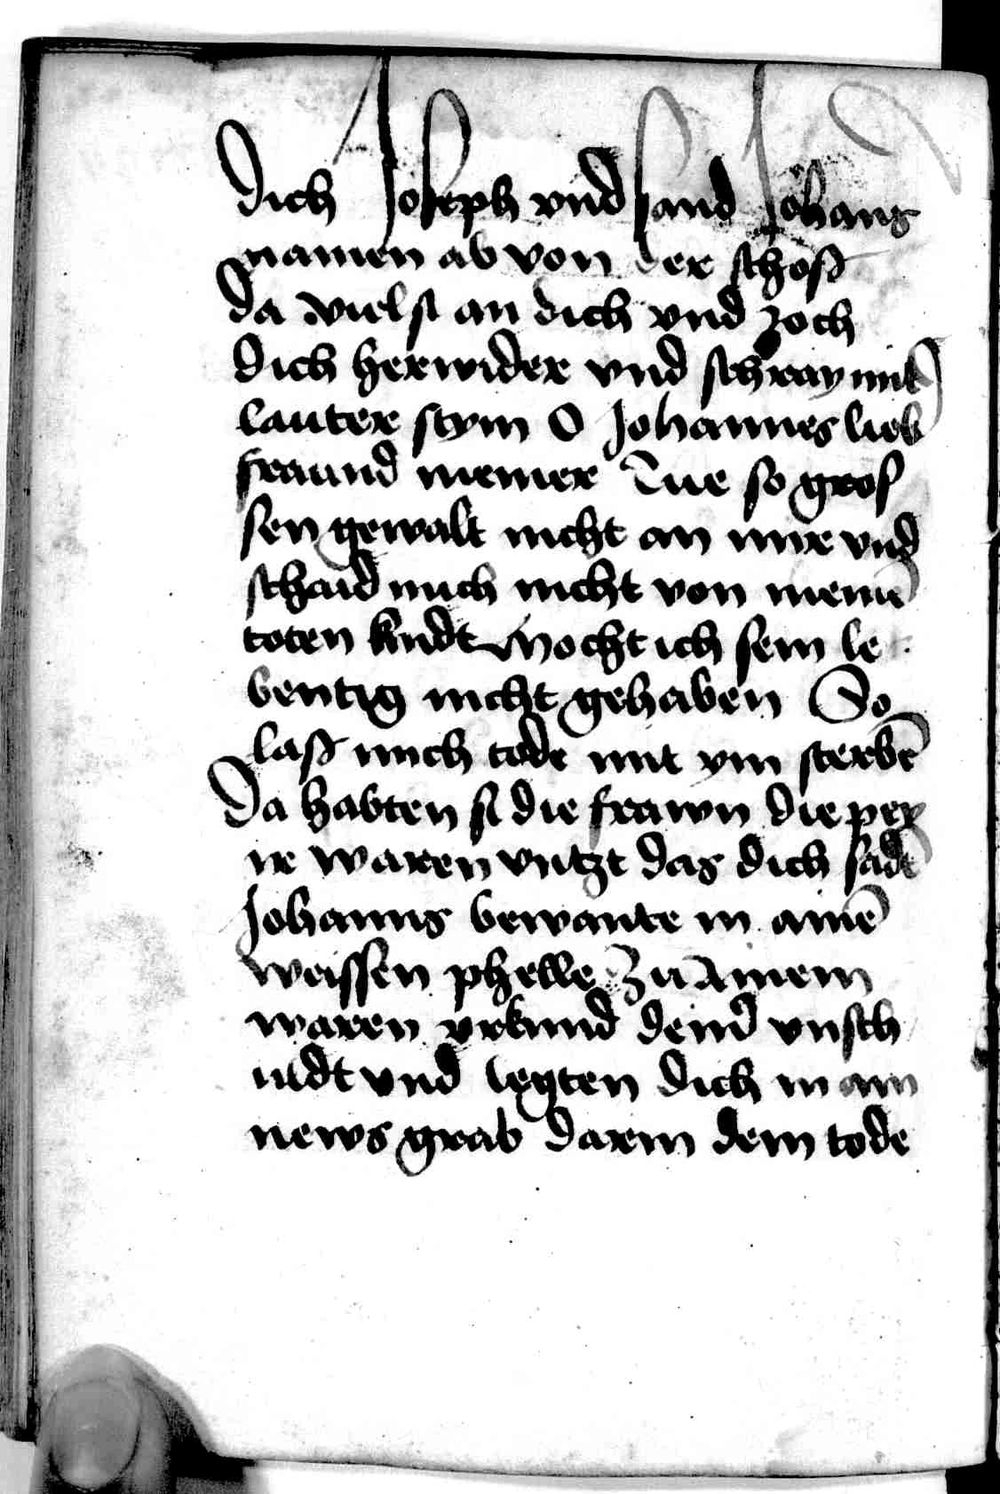 dich Joseph vnd sand Johans
namen ab von der schoß
Da vielst an dich vnd zoch
dich herwider vnd schray mit
lauter stym O Johannes lieb
fraund meiner Tue so gros
sen gewalt nicht an mir vnd
schaid mich nicht von meinē
toten kindt Mocht ich sein le
bentig nicht gehaben So
laß mich tode mit ym sterbē
Da habten si die frawn die pey
ir waren vntzt das dich sādt
Johanns bewante in ainē
weissen phelle Zu ainem
waren vrkund deinḍ vnsch
uldt vnd legten dich in ain
news grab darein dem tode